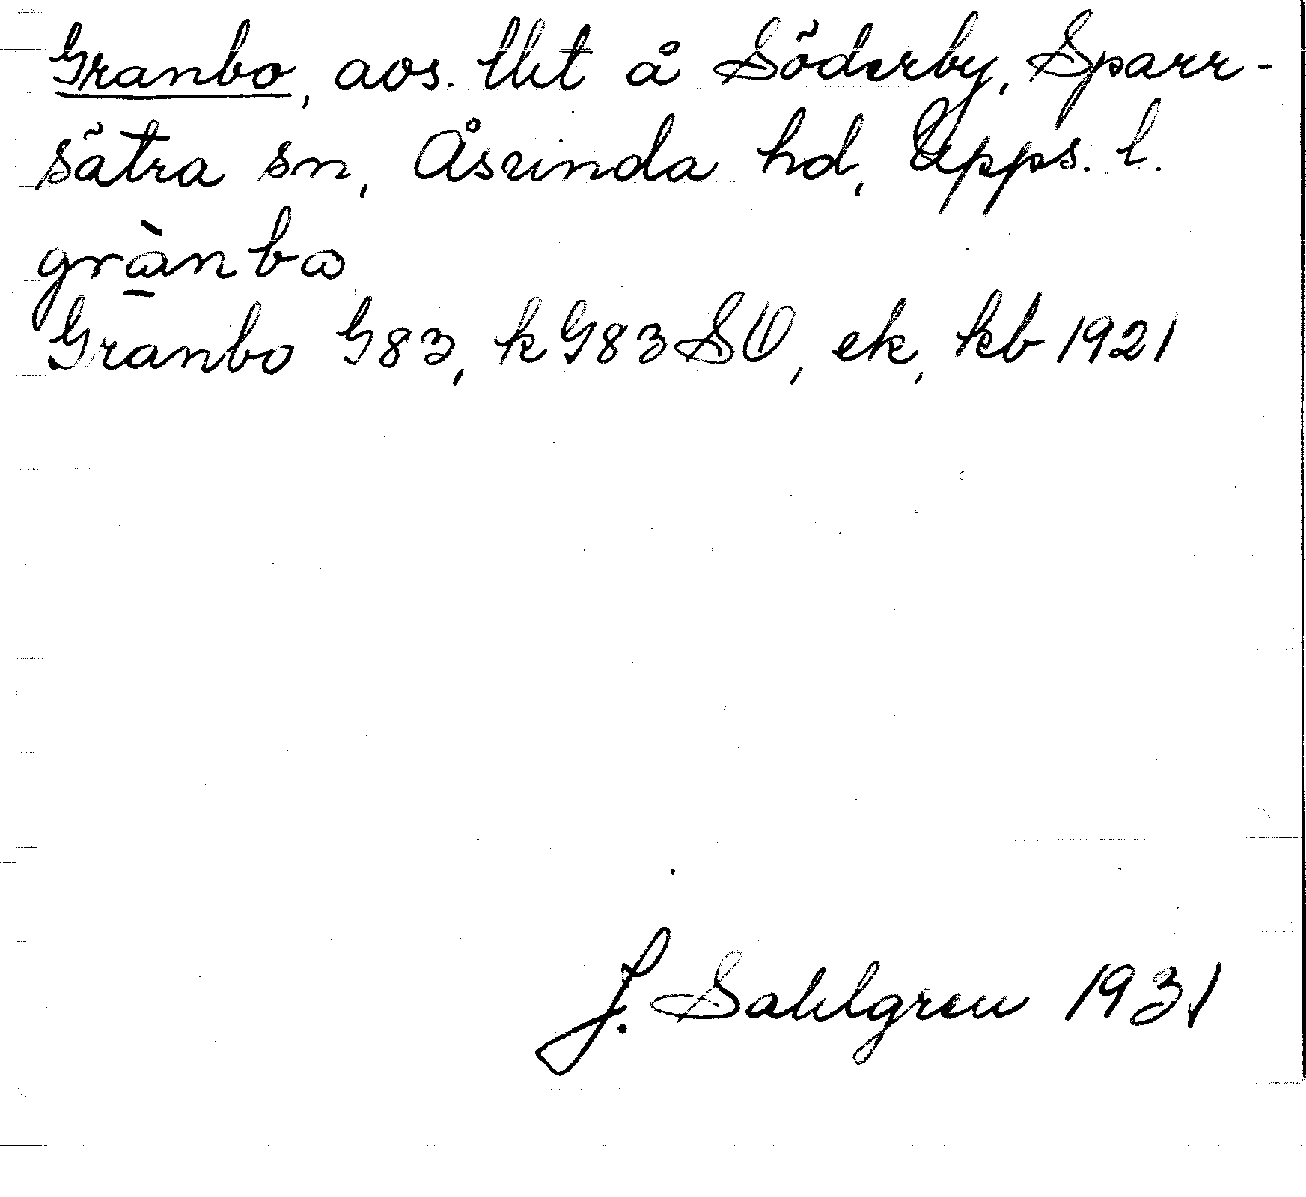 Granbo, avs. lht å Söderby, Sparr-
sätra sn, Åsunda hd, Upps. l.
grànbω
Granbo G83, k G83SV, ek, kb 1921
J. Sahlgren 1931